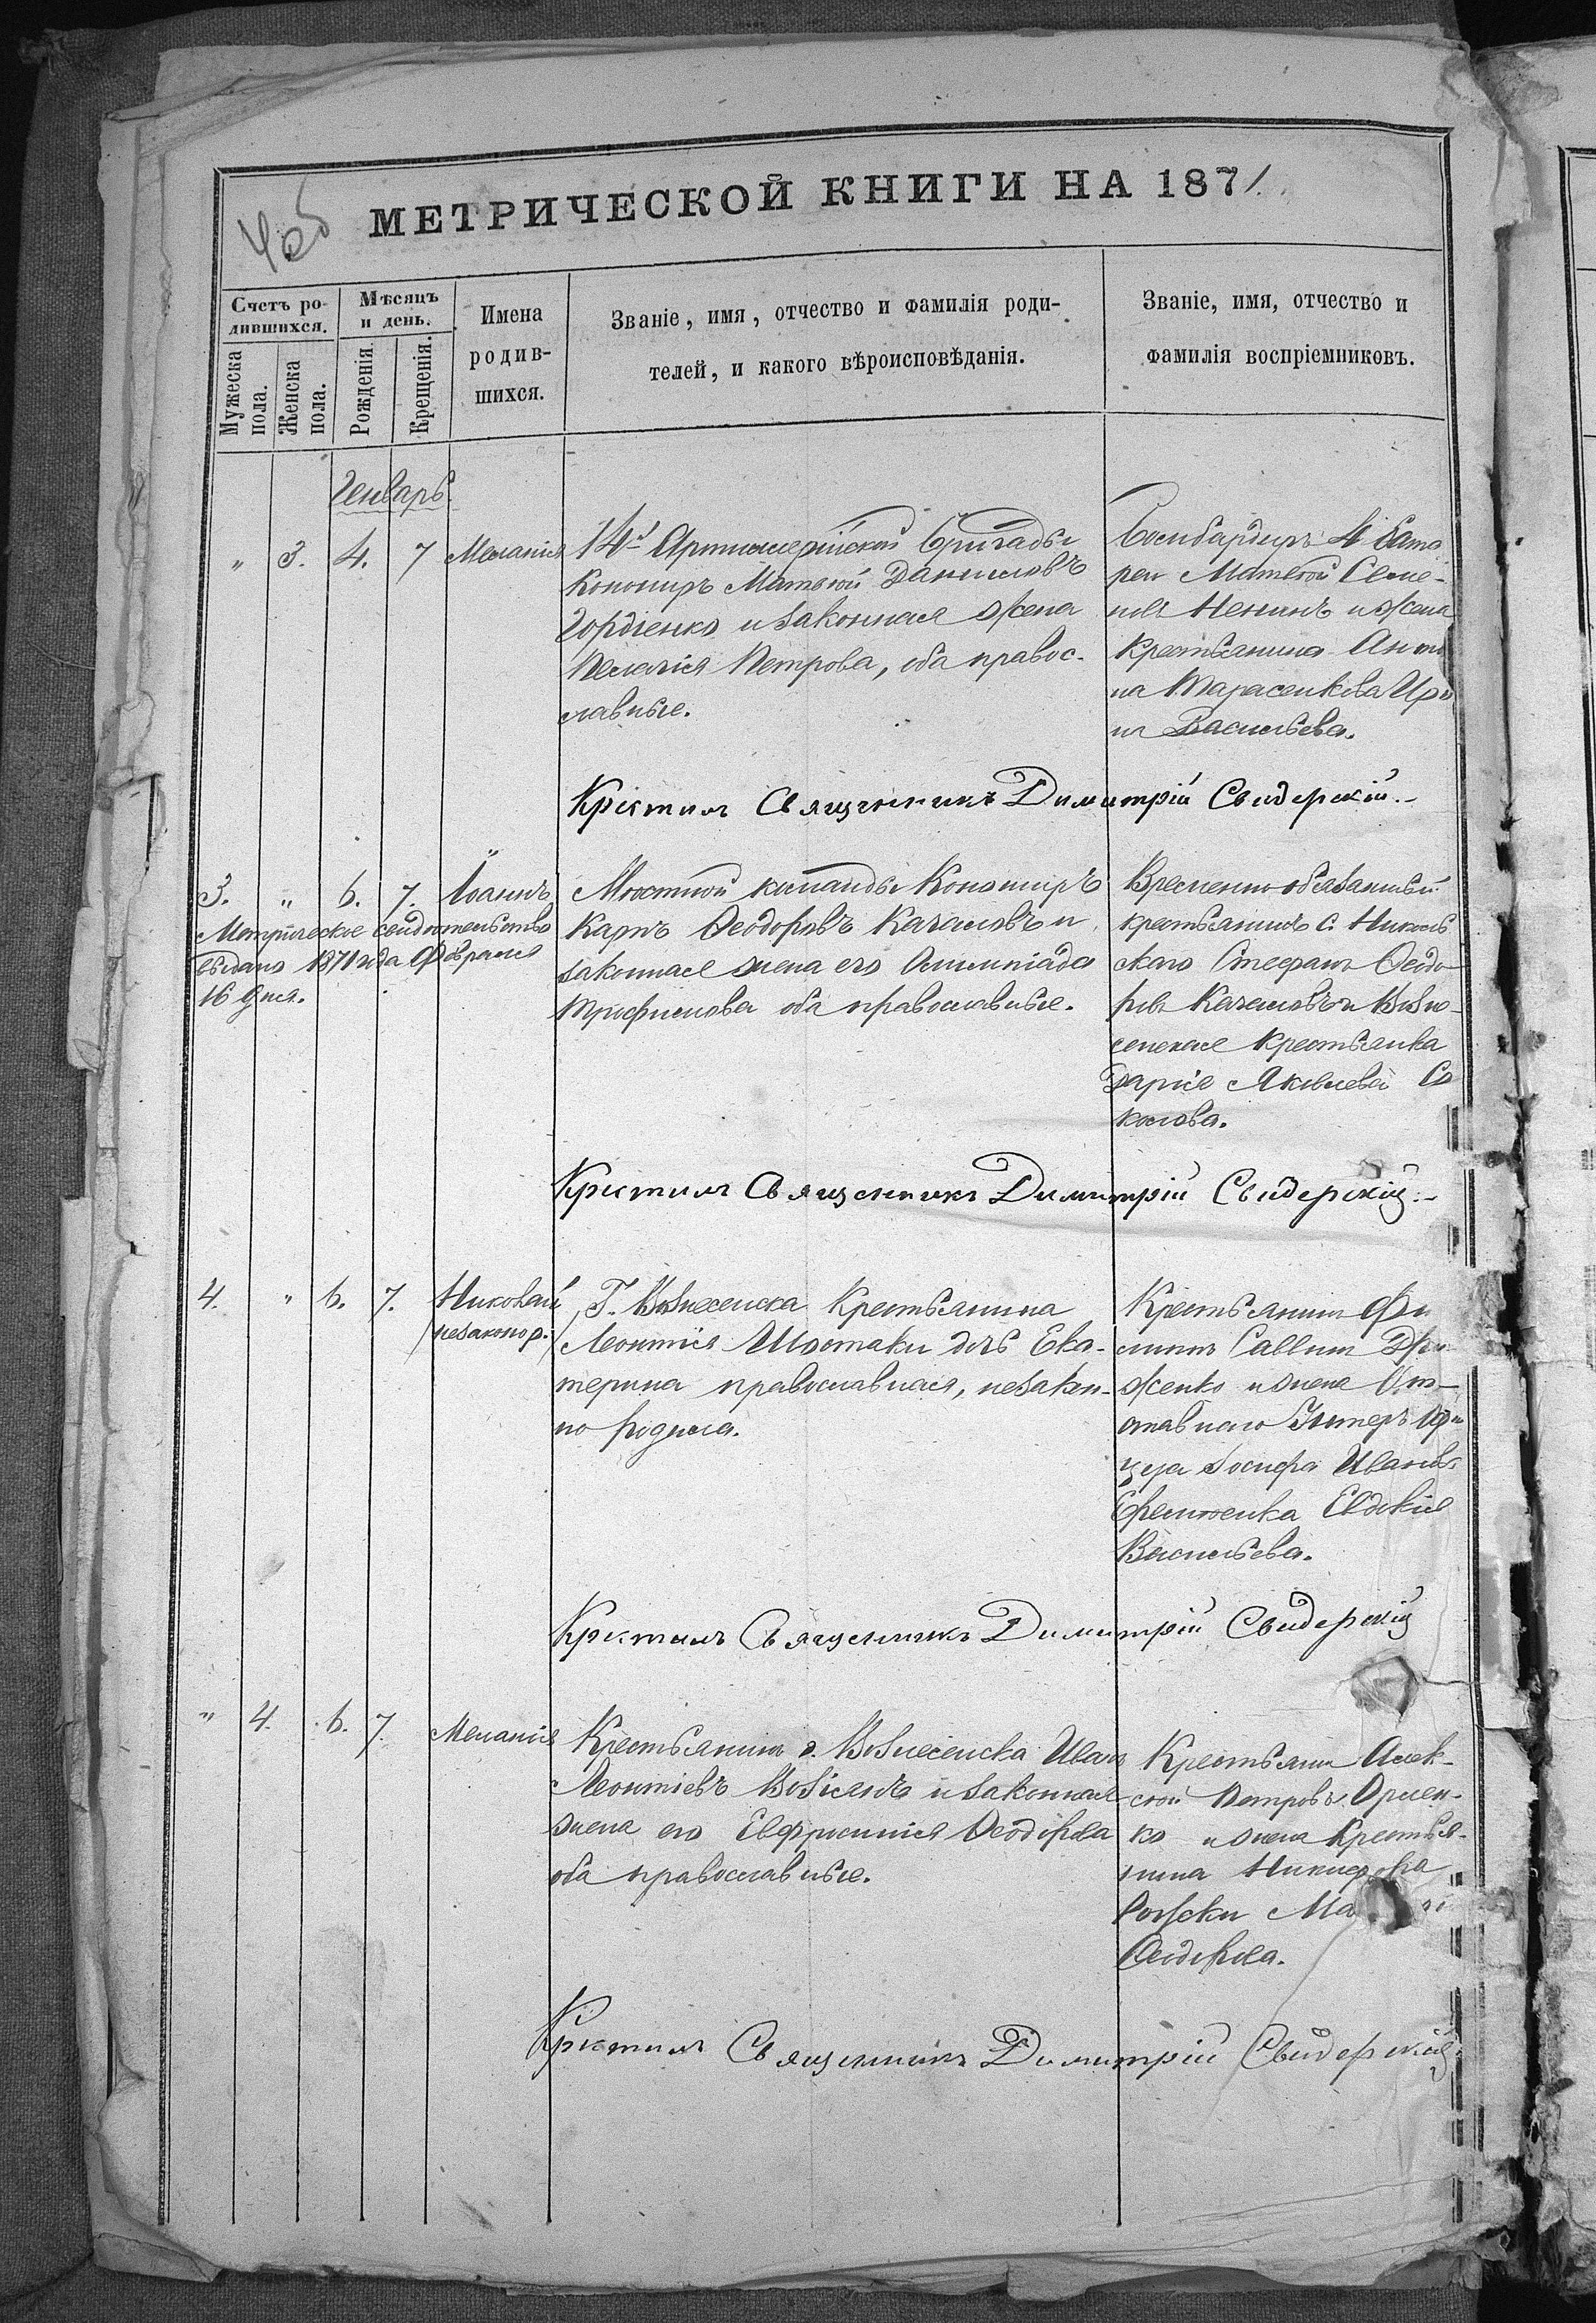 МЕТРИЧЕСКОЙ КНИГИ НА 1871.
Счетъ ро-
дившихся.
Мѣсяцъ
и день.
Имена
родив-
шихся.
Званіе, имя, отчество и фамилія роди-
телей, и какого вѣроисповѣданія.
Званіе, имя, отчество и
фамилія воспріемниковъ.
Мужеска
пола.
Женска
пола.
Рожденія.
Крещенія.
Генварь
" 3. 4. 7 Меланія
14й Артиллерійской Бригады
Канониръ Матвѣй Даниловъ
Гордіенко и законная жена
Пелагія Петрова, оба правос-
лавные.
Бомбардиръ 4 бата
реи Матвѣй Семе-
новъ и жена
Крестьянина Анто
на Тарасенкова Ири
на Васильева.
Крестилъ Священникъ Димитрій Свидерскій.
3. " 6. 7. Іоаннъ
Метрическое свидѣтельство
выдано 1871 года Февраля
16 дня.
Мѣстной команды Канониръ
Карпъ Ѳеодоровъ Качаловъ и
законная жена его Олимпіада
Трофимова оба православные.
Временно обязанный
крестьянинъ с. Николь
скаго Стефанъ Ѳеодо
ровъ Качаловъ и Возне-
сенская Крестьянка
Дарія Яковлева Со
колова.
Крестилъ Священникъ Димитрій Свидерскій.
4. " 6. 7. Николай
незаконор.
Г. Вознесенска Крестьянина
Леонтія Шостаки дочь Ека-
терина православная, незакон-
но родила.
Крестьянинъ Фи
липпъ Саввинъ
и жена От-
ставнаго Унтеръ Офи
цера Іосифа Иванова
Ефименка Евдокія
Васильева.
Крестилъ Священникъ Димитрій Свидерскій
" 4. 6. 7. Меланія
Крестьянинъ г. Вознесенска Иванъ
Леонтіевъ и законная
жена его Евфросинія Ѳеодорова
оба православные.
Крестьянинъ Алек-
сѣй Петровъ
ко и жена Крестья-
нина Никифора
Ѳеодорова.
Крестилъ Священникъ Димитрій Свидерскій